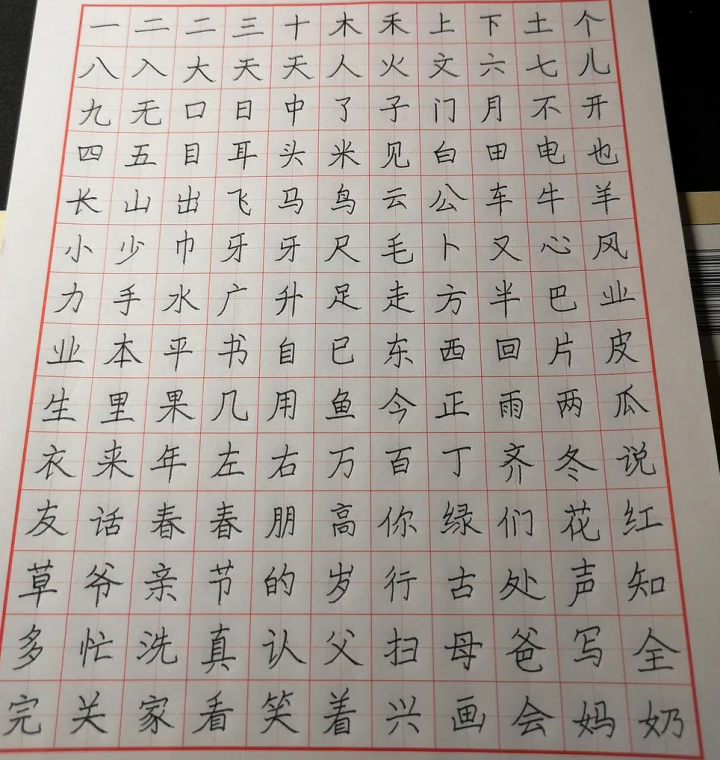 一二二三十木禾上下土个
八入大天天人火文六七儿
九无口日中了子门月不开
四五目耳头米见白田电也
长山出飞马鸟云公车牛羊
小少巾牙牙尺毛卜又心风
力手水广升足走方半巴业
业本平书自已东西回片皮
生里果几用鱼今正雨两瓜
衣来年左右万百丁齐冬说
友话春春朋高你绿们花红
草爷亲节的岁行古处声知
多忙洗真认父扫母爸写全
完关家看笑着兴画会妈奶